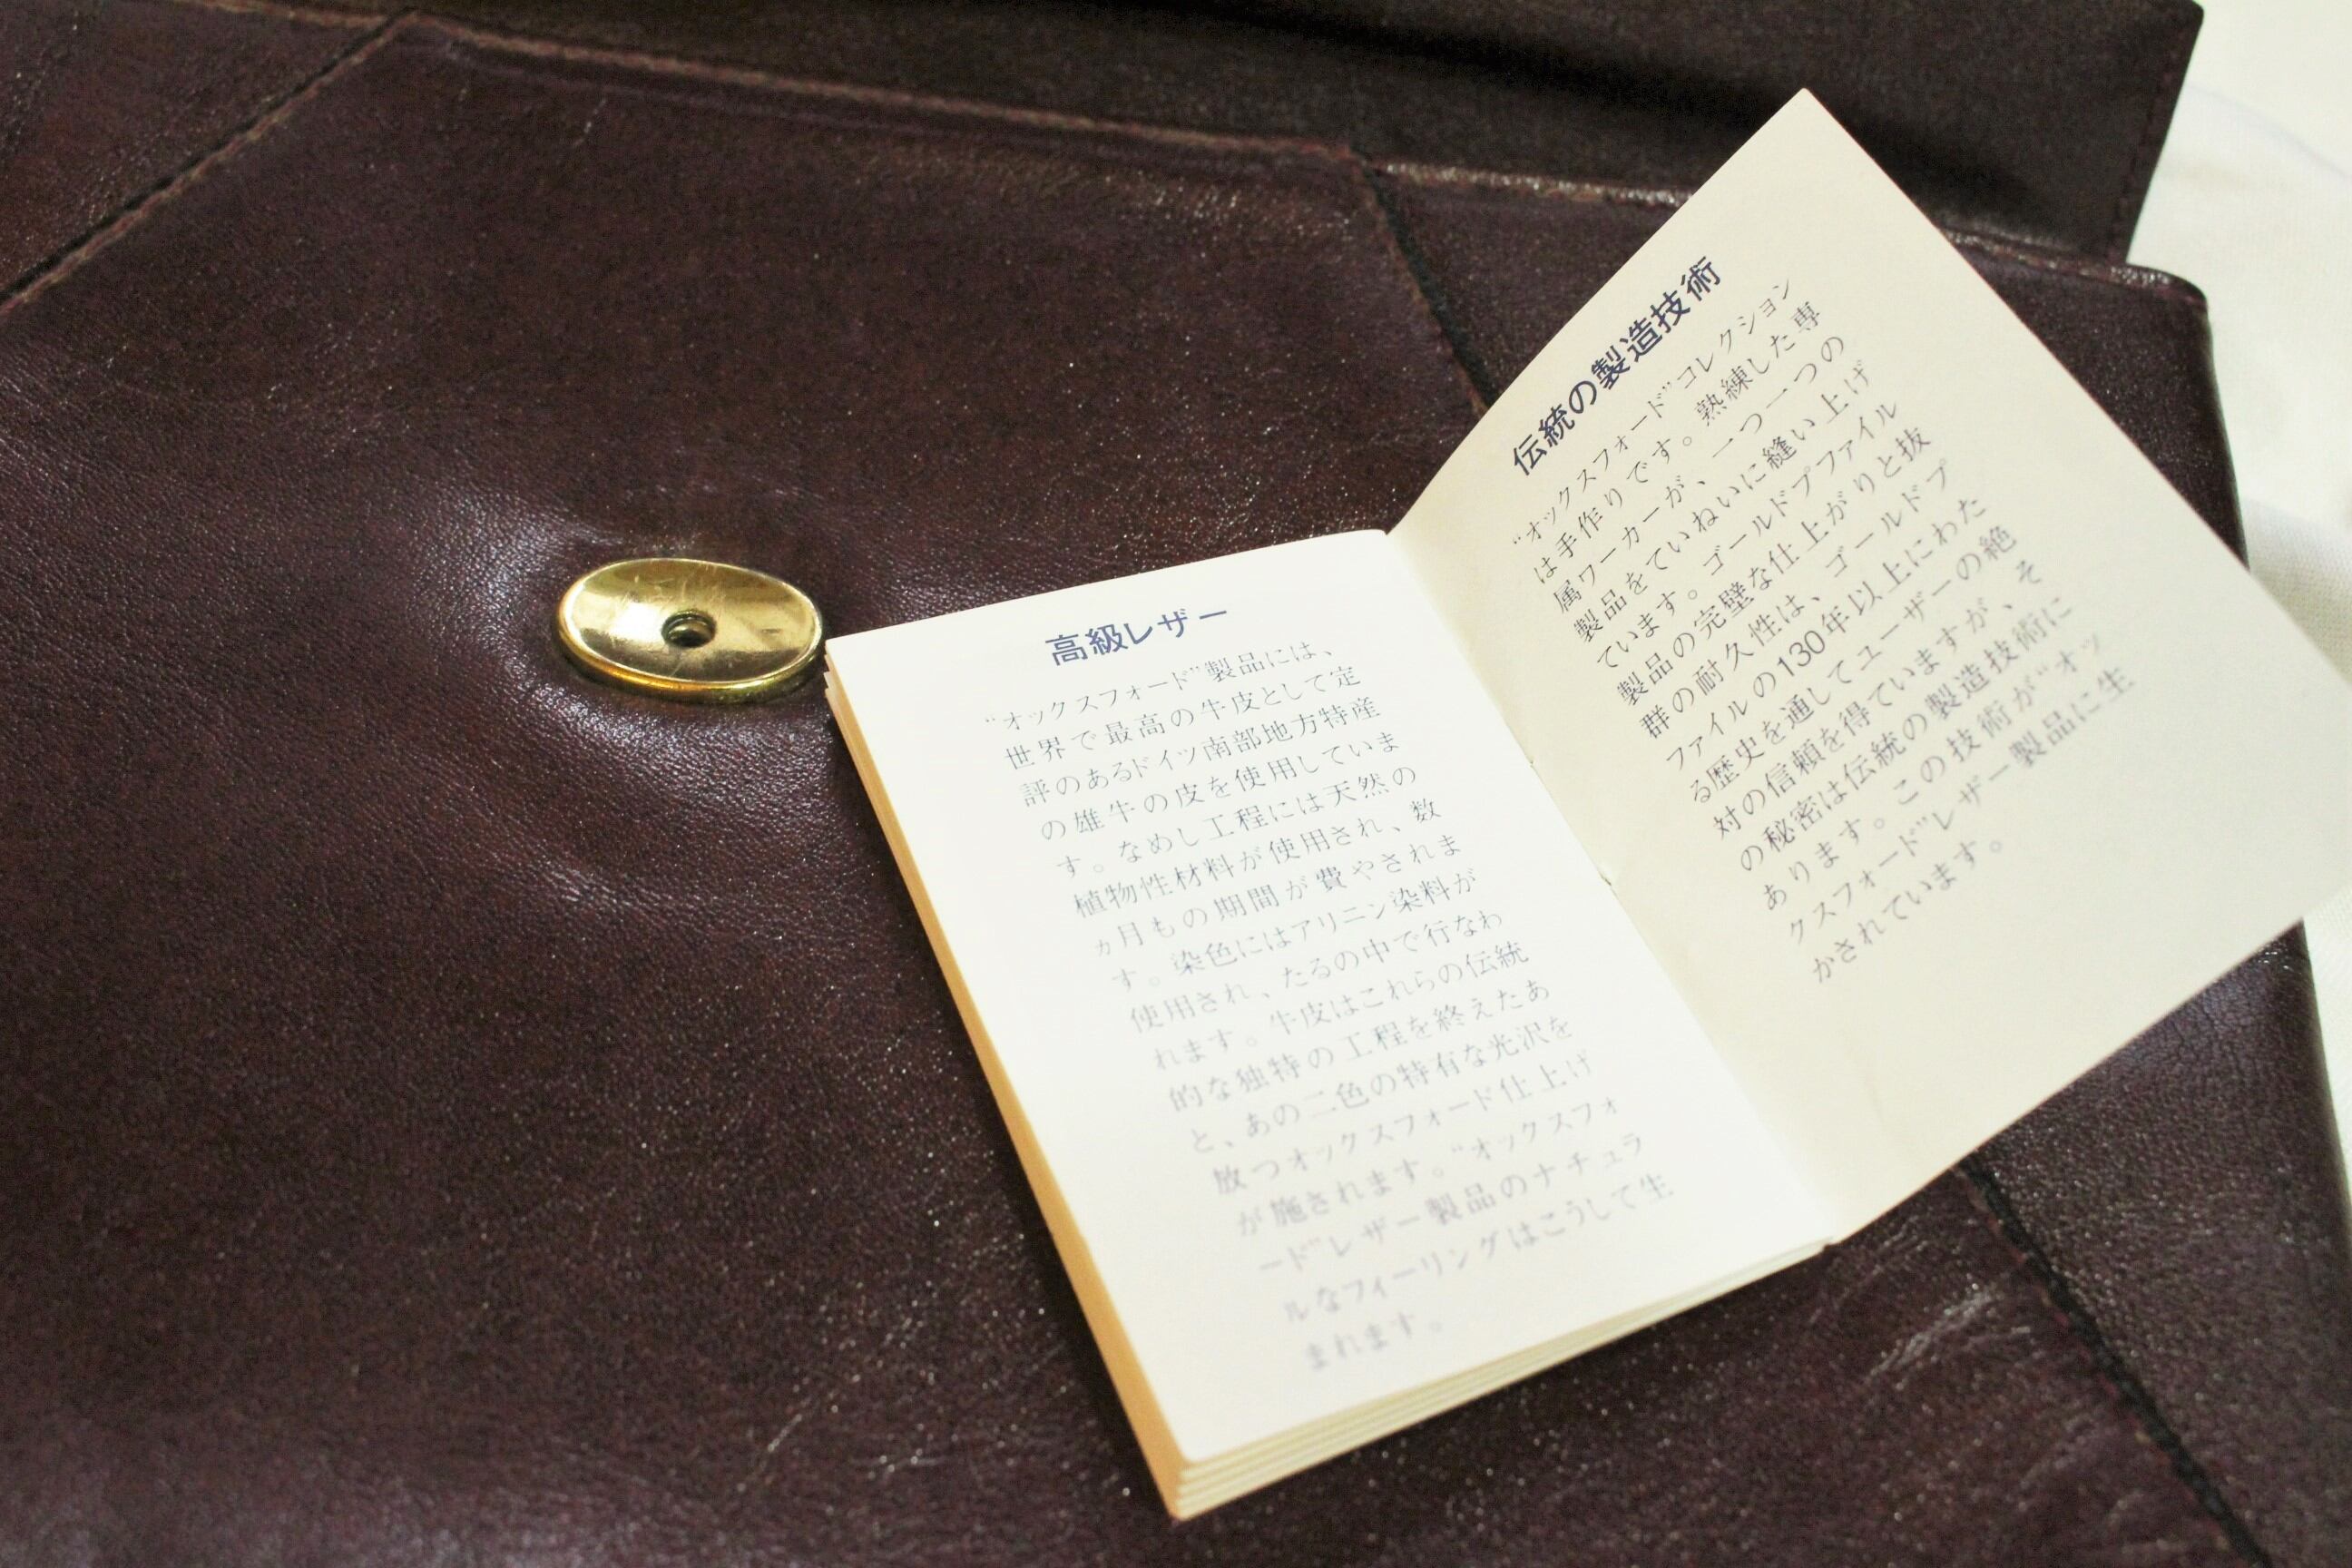 高級レザー
“オックスフォード”製品には、
世界で最高の牛皮として定
評のあるドイツ南部地方特産
の雄牛の皮を使用していま
す。なめし工程には天然の
植物性材料が使用され、数
ヵ月もの期間が費やされま
す。染色にはアリニン染料が
使用され、たるの中で行なわ
れます。牛皮はこれらの伝統
的な独特の工程を終えたあ
と、あの二色の特有な光沢を
放つオックスフォード仕上げ
が施されます。“オックスフォ
ード”レザー製品のナチュラ
ルなフィーリングはこうして生
まれます。
伝統の製造技術
“オックスフォード”コレクション
は手作りです。熟練した専
属ワーカーが、一つ一つの
製品をていねいに縫い上げ
ています。ゴールドプファイル
製品の完璧な仕上がりと抜
群の耐久性は、ゴールドプ
ファイルの130年以上にわた
る歴史を通してユーザーの絶
対の信頼を得ていますが、そ
の秘密は伝統の製造技術に
あります。この技術が“オッ
クスフォード”レザー製品に生
かされています。